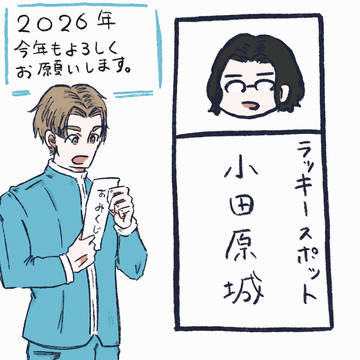 2026年
今年もよろしく
お願いします。
おみくじ
ラッキースポット
小田原城